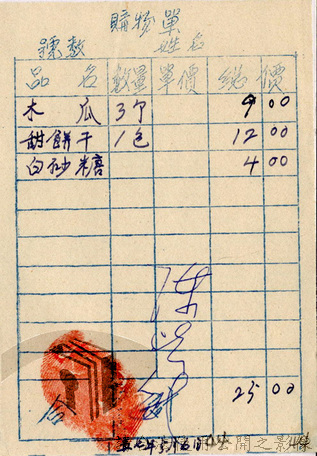 購物單
號數 姓名
品名 數量 單價 總價
木瓜 3个 9 00
甜餅干 1包 12 00
白砂糖 4 00
合 25 00
公開之影像